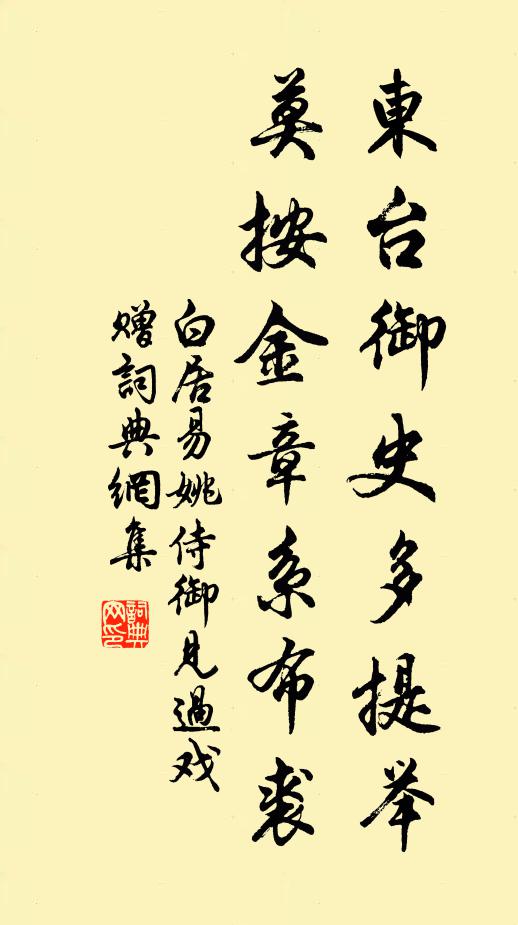 東台御史多提举
莫按金章系布裘
白居易姚侍御見過戏
赠詞典網集
詞典
网印